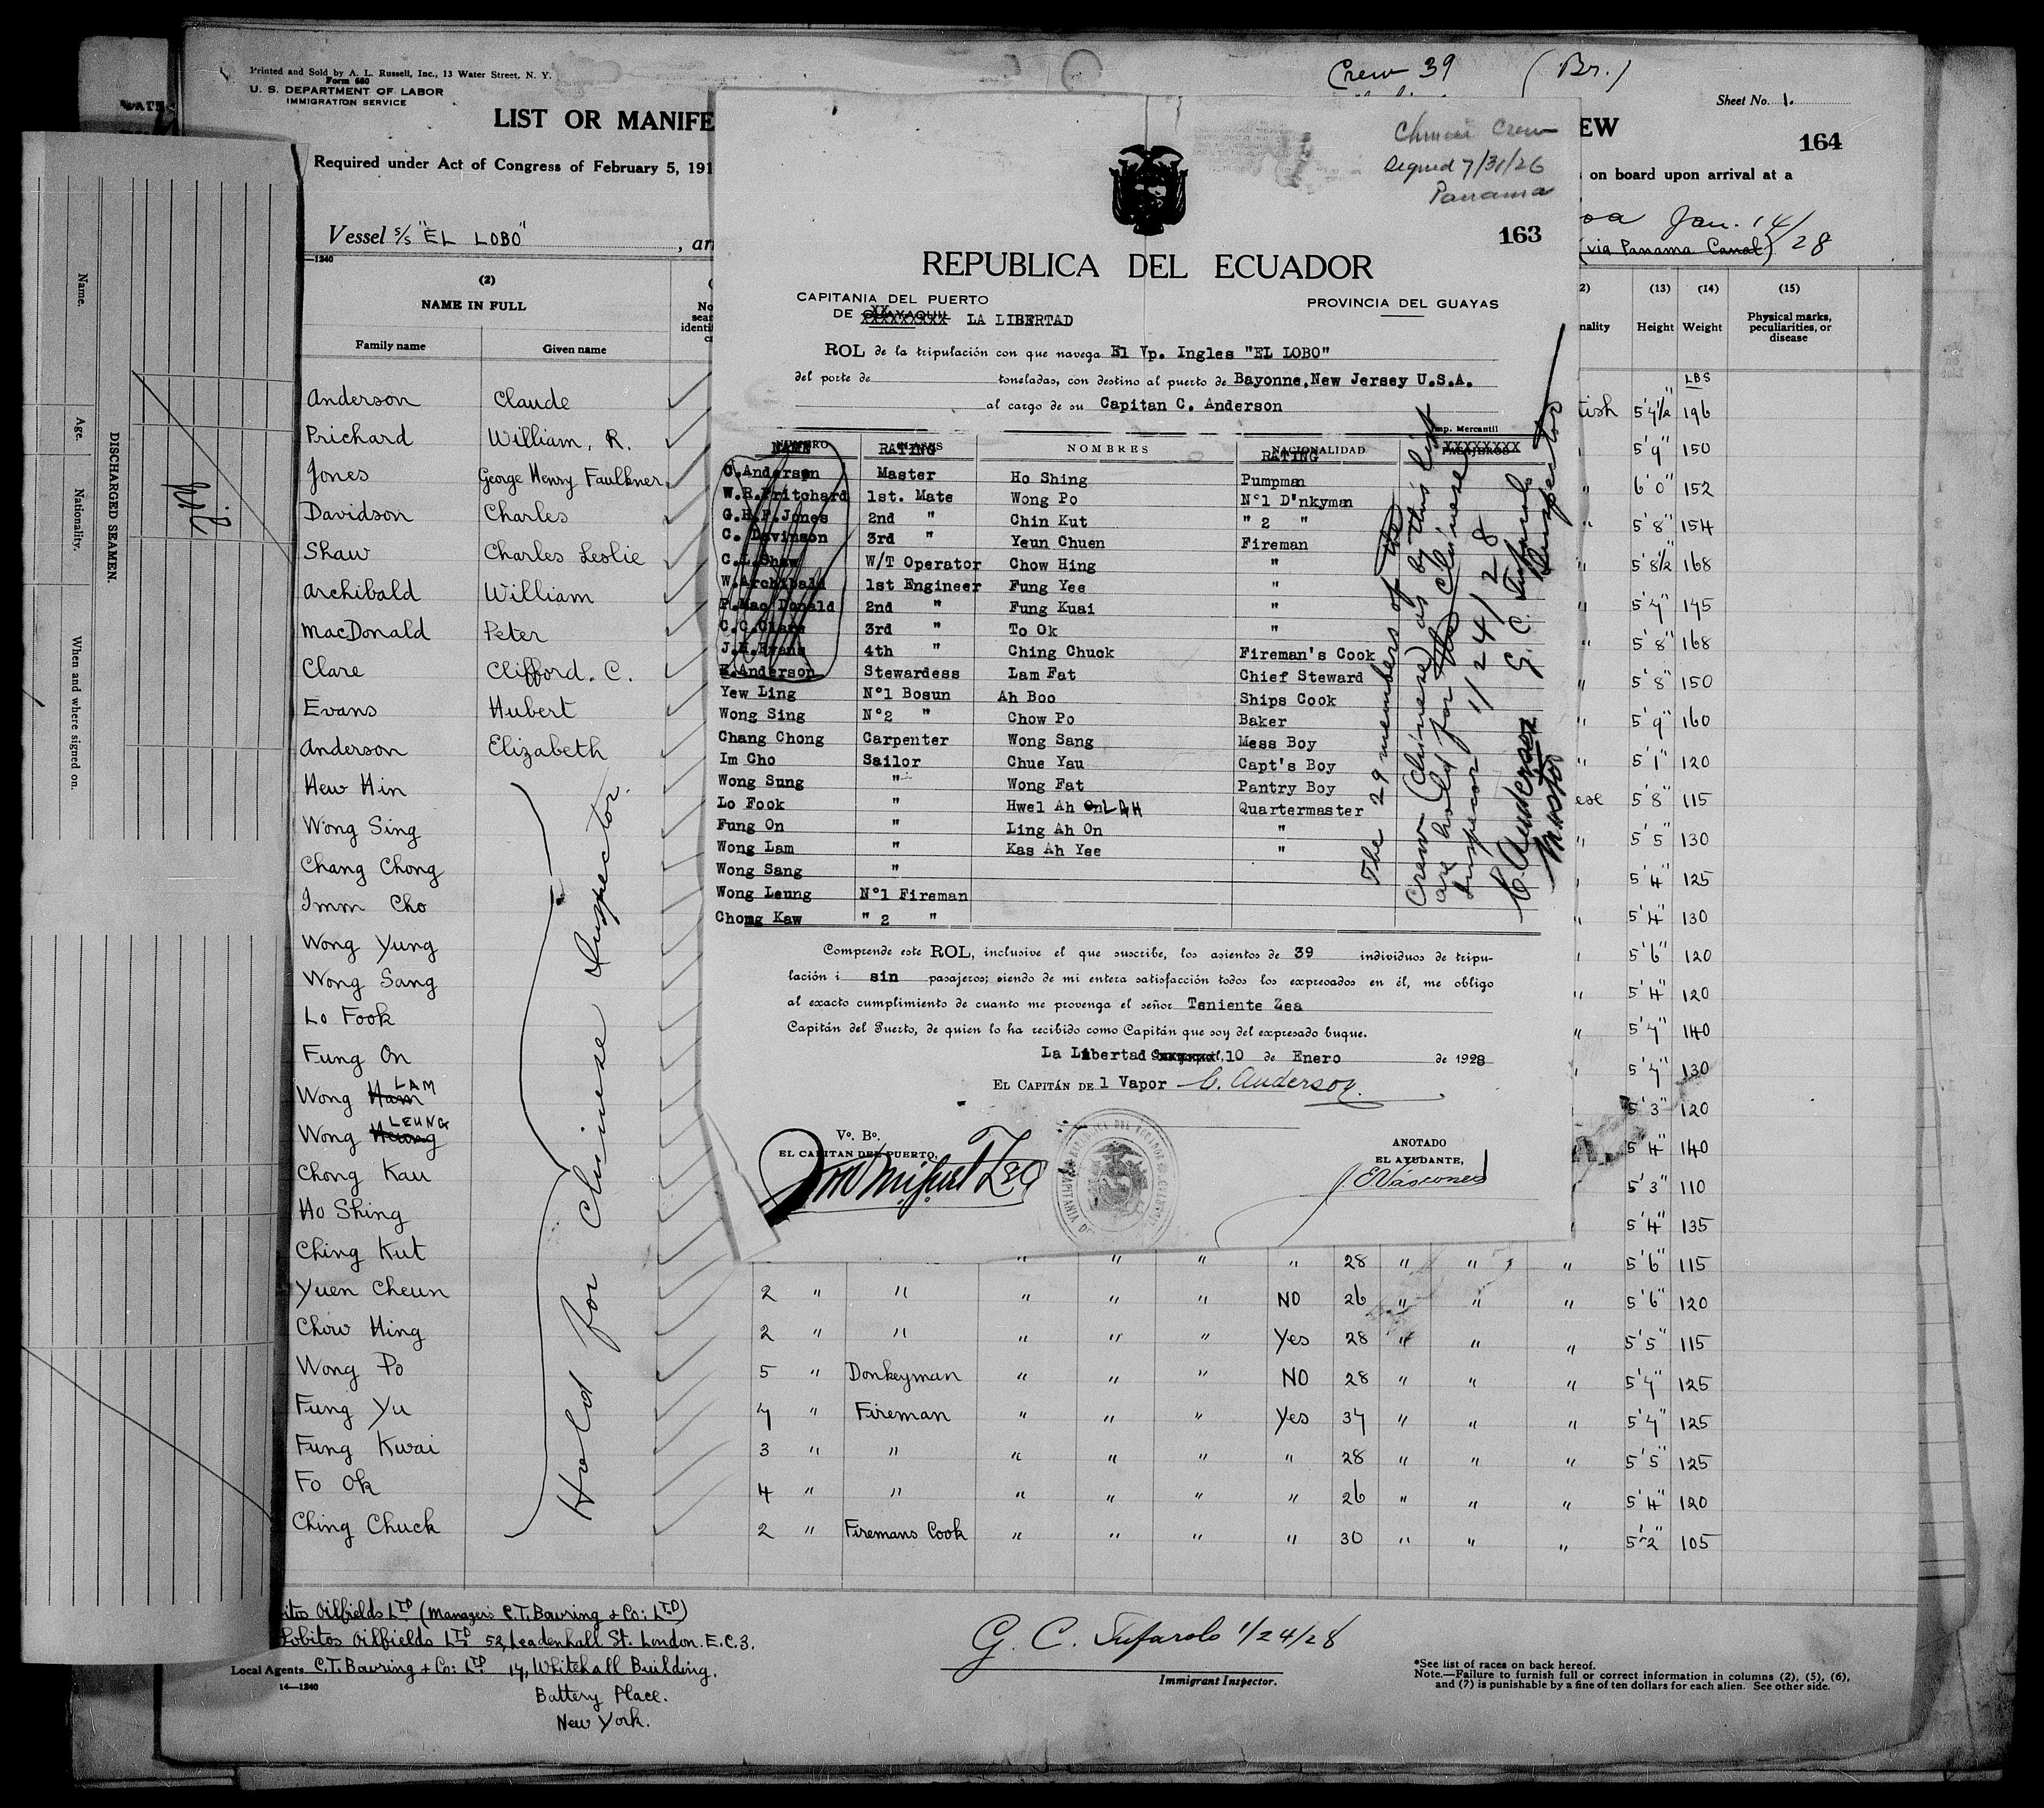 Printed and Sold by A. L. Russell, Inc., 13 Water Street, N. Y.
Form 680
U. S. DEPARTMENT OF LABOR
IMMIGRATION SERVICE
Crew 39 (Br.)
Sheet No. 1.
LIST OR MANIFE
EW
164
Required under Act of Congress of February 5, 191
on board upon arrival at a
Vessel s/s "EL LOBO", ar
Jan. 14/28
(via Panama Canal)
14—1240
(2)
NAME IN FULL
Family name
Given name
(13) (14) (15)
nality Height Weight Physical marks, peculiarities, or disease
LBS
Anderson Claude
Prichard William, R.
Jones George Henry Faulkner
Davidson Charles
Shaw Charles Leslie
Archibald William
MacDonald Peter
Clare Clifford. C.
Evans Hubert
Anderson Elizabeth
Hew Hin
Wong Sing
Chang Chong
Imm Cho
Wong Yung
Wong Sang
Lo Fook
Fung On
Wong Ham LAM
Wong Heung LEUNG
Chong Kau
Ho Shing
Ching Kut
Yuen Cheun
Chow Hing
Wong Po
Fung Yu
Fung Kwai
Fo Ok
Ching Chuck
Hold for Chinese Inspector.
tish 5'7½" 196
" 5'9" 150
" 6'0" 152
" 5'8" 154
" 5'8½" 168
" 5'7" 145
" 5'8" 168
" 5'8" 150
" 5'9" 160
" 5'1" 120
ese 5'8" 115
" 5'5" 130
" 5'4" 125
" 5'4" 130
" 5'6" 120
" 5'4" 120
" 5'7" 140
" 5'7" 130
5'3" 120
5'4" 140
5'3" 110
5'4" 135
" " " " 28 " " " 5'6" 115
2 " " " " " NO 26 " " " 5'6" 120
2 " " " " " Yes 28 " " " 5'5" 115
5 " Donkeyman " " " NO 28 " " " 5'7" 125
7 " Fireman " " " Yes 37 " " " 5'7" 125
3 " " " " " " 28 " " " 5'5" 125
4 " " " " " " 26 " " " 5'4" 120
2 " Firemans Cook " " " " 30 " " " 5'2" 105
Oilfields LTD (Managers C.T. Bowring & Co: LTD)
Lobitos Oilfields LTD 52, Leadenhall St. London. E.C.3.
Local Agents C.T. Bowring & Co: LTD 17, Whitehall Building.
Battery Place.
New York.
14—1240
G. C. Tufarolo 1/24/28
Immigrant Inspector.
*See list of races on back hereof.
Note.—Failure to furnish full or correct information in columns (2), (5), (6),
and (7) is punishable by a fine of ten dollars for each alien. See other side.
DISCHARGED SEAMEN.
Name.
Age.
Nationality.
When and where signed on.
Nil
Chinese Crew
Signed 7/31/26
Panama
163
REPUBLICA DEL ECUADOR
CAPITANIA DEL PUERTO
DE GUAYAQUIL LA LIBERTAD
PROVINCIA DEL GUAYAS
ROL de la tripulación con que navega El Vp. Ingles "EL LOBO"
del porte de toneladas, con destino al puerto de Bayonne, New Jersey U.S.A.
al cargo de su Capitan C. Anderson
Imp. Mercantil
NAME RATING NOMBRES NACIONALIDAD RATING PASAJEROS
C.Anderson Master Ho Shing Pumpman
W.R.Pritchard 1st. Mate Wong Po N°1 D'nkyman
G.H.F.Jones 2nd " Chin Kut " 2 "
C. Davinson 3rd " Yeun Chuen Fireman
C.L.Shaw W/T Operator Chow Hing "
W.Archibald 1st Engineer Fung Yee "
P.Mac Donald 2nd " Fung Kuai "
C.C.Clare 3rd " To Ok "
J.H.Evans 4th " Ching Chuck Fireman's Cook
E.Anderson Stewardess Lam Fat Chief Steward
Yew Ling N°1 Bosun Ah Boo Ships Cook
Wong Sing N°2 " Chow Po Baker
Chang Chong Carpenter Wong Sang Mess Boy
Im Cho Sailor Chue Yau Capt's Boy
Wong Sung " Wong Fat Pantry Boy
Lo Fook " Hwel Ah Quartermaster
Fung On " Ling Ah On "
Wong Lam " Kas Ah Yee "
Wong Sang "
Wong Leung N°1 Fireman
Chong Kaw " 2 "
The 29 members of the
Crew (Chinese) as by this list
are hold for the Chinese
Inspector 1/24/28
G. C. Tufarolo
Inspector
C. Anderson
Master
Comprende este ROL, inclusive el que suscribe, los asientos de 39 individuos de tripu-
lación i sin pasajeros; siendo de mi entera satisfacción todos los expresados en él, me obligo
al exacto cumplimiento de cuanto me provenga el señor Teniente Zea
Capitán del Puerto, de quien lo ha recibido como Capitán que soy del expresado buque.
La Libertad, 10 de Enero de 1928
EL CAPITÁN DE l Vapor C. Anderson.
Vo. Bo.
EL CAPITAN DEL PUERTO,
ANOTADO
EL AYUDANTE,